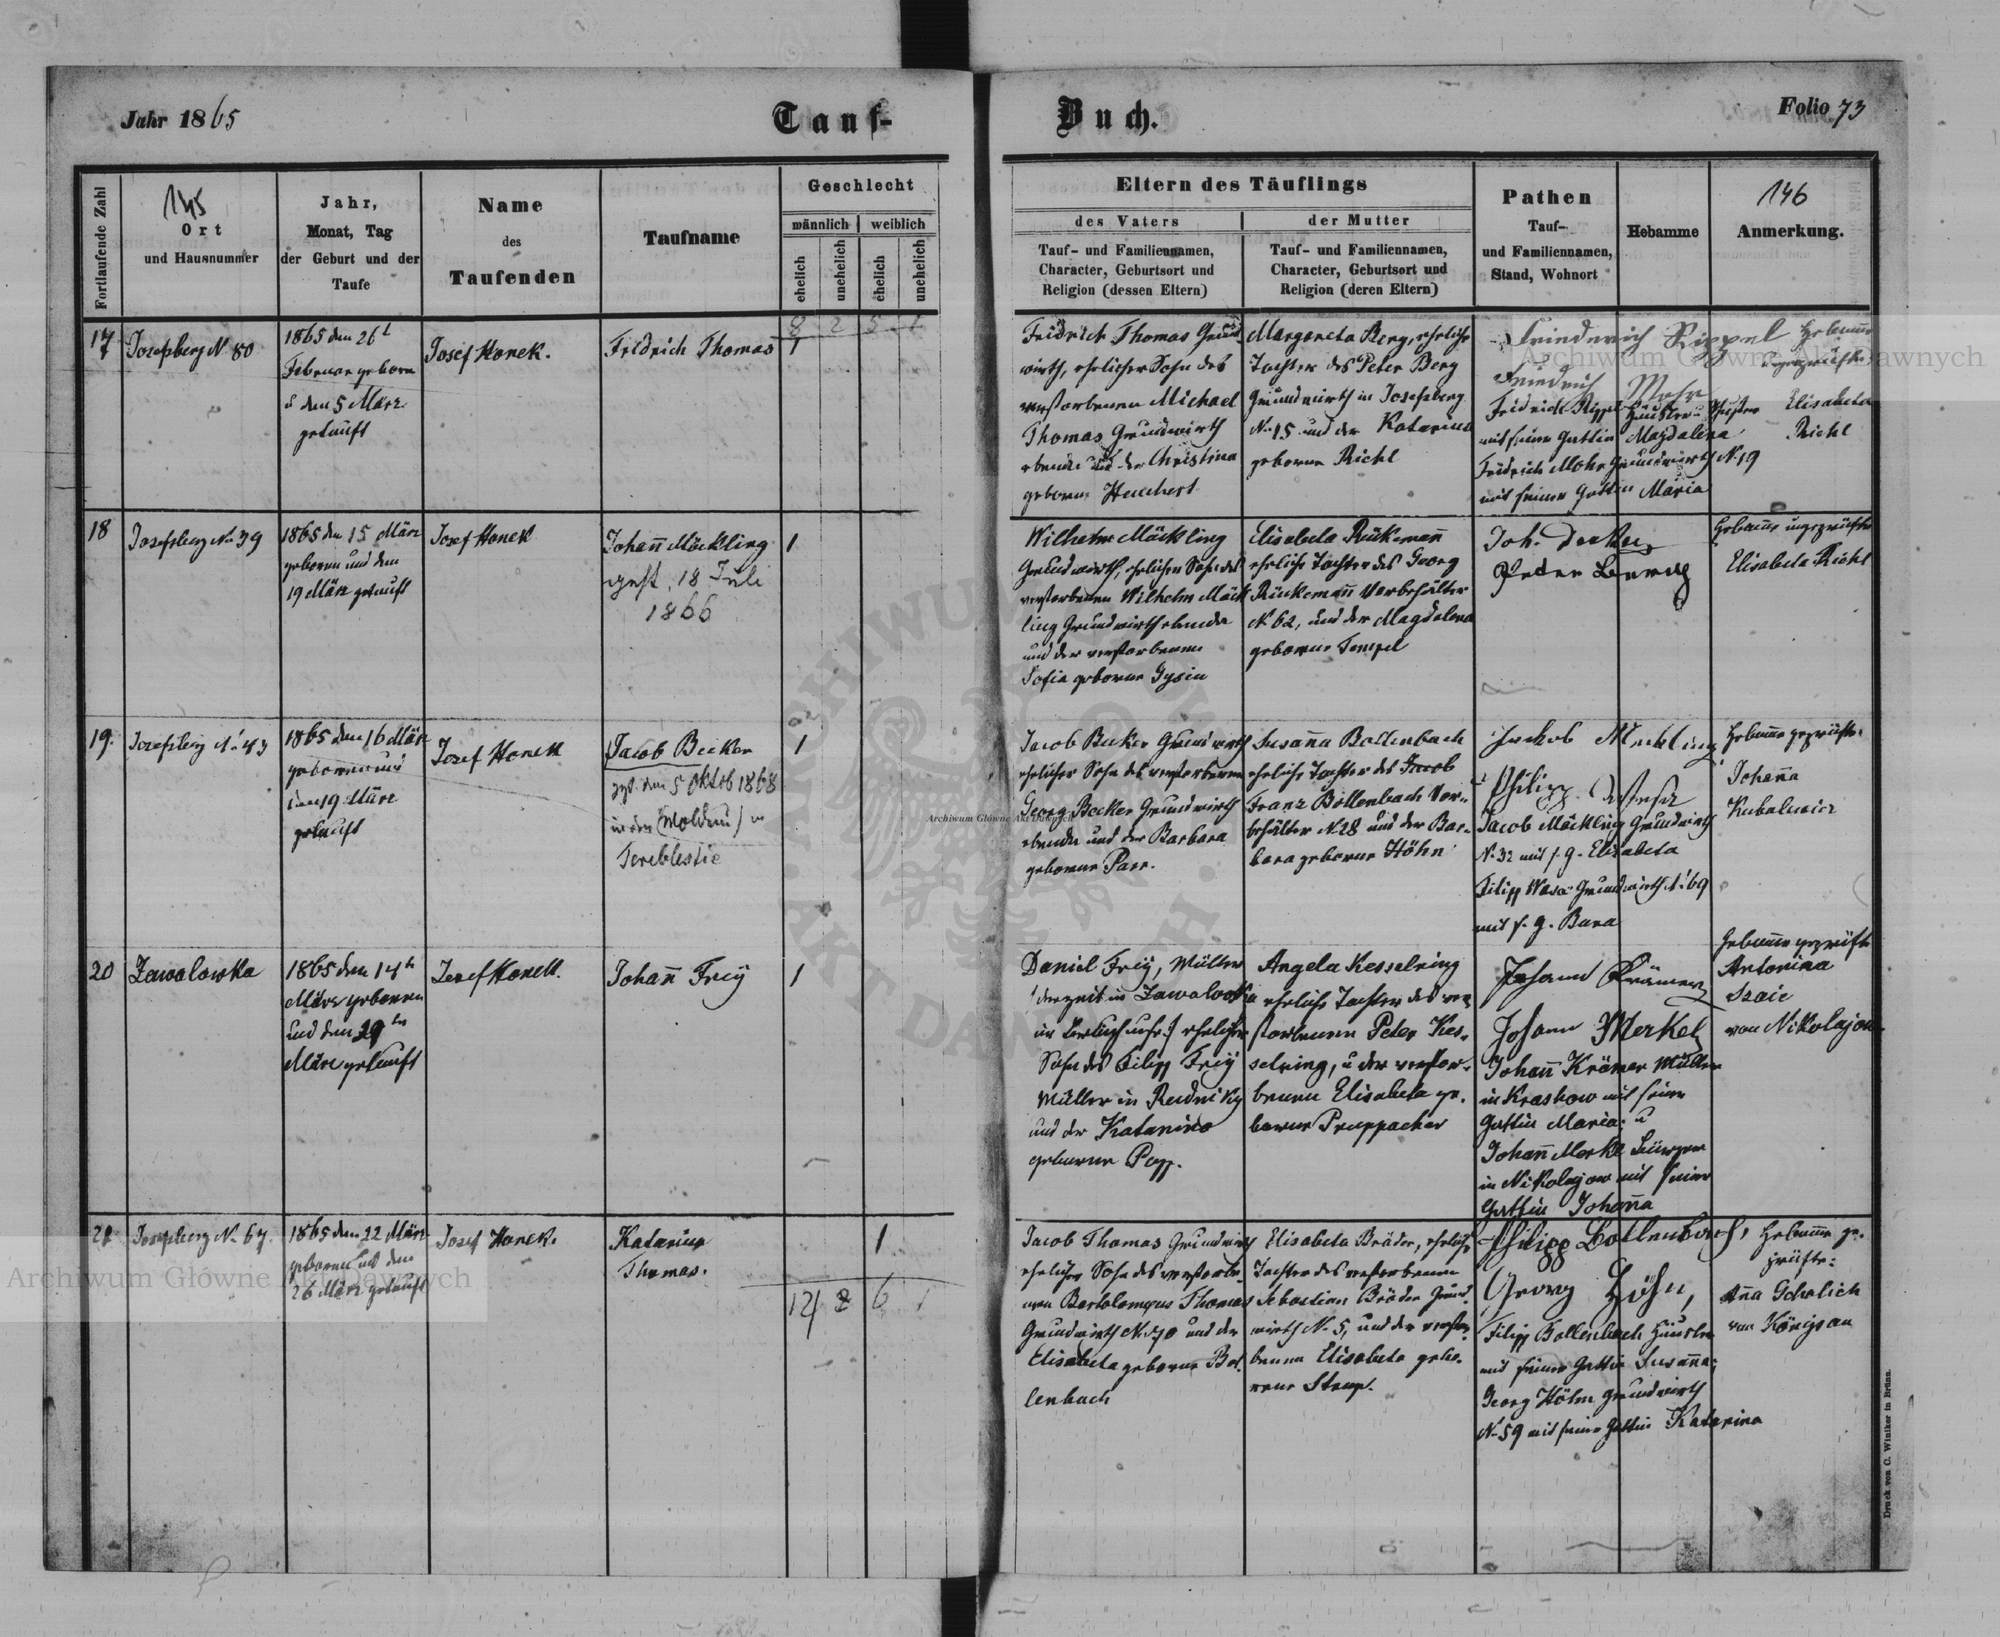 Jahr 1865
Tauf-
Buch.
Folio 73
Fortlaufende Zahl
145
Ort
und Hausnummer
Jahr,
Monat, Tag
der Geburt und der
Taufe
Name
des
Taufenden
Taufname
Geschlecht
männlich
weiblich
ehelich
unehelich
ehelich
unehelich
Eltern des Täuflings
des Vaters
der Mutter
Tauf- und Familiennamen,
Character, Geburtsort und
Religion (dessen Eltern)
Tauf- und Familiennamen,
Character, Geburtsort und
Religion (deren Eltern)
Pathen
Tauf-
und Familiennamen,
Stand, Wohnort
Hebamme
146
Anmerkung.
8 2 5 1
17
Josefsberg N. 80
1865 den 26t
Februar geboren
u den 5 März
getauft
Josef Honek.
Fridrich Thomas
1
Fridrich Thomas Grund
wirth, ehelicher Sohn des
verstorbenen Michael
Thomas Grundwirth
ebenda und der Christina
geborne
Margareta Berg, eheliche
Tochter des Peter Berg
Grundwirth in Josefsberg
N. 15 und der Katarina
geborne Richl
Friederich Rippel
Friedrich Mohr
Fridrich Rippel Häusler
mit seiner Gattin Magdalena
Fridrich Mohr Grundwirth N. 19
mit seiner Gattin Maria
Hebamme
ungeprüfte
Elisabeta
Richl
18
Josefsberg No. 39
1865 den 15 März
geboren und den
19 März getauft
Josef Honek
Johann Möckling
gest. 18 Juli
1866
1
Wilhelm Möckling
Grundwirth, ehelicher Sohn des
verstorbenen Wilhelm Möck
ling Grundwirth ebenda
und der verstorbenen
Sofia geborne Gysin
Elisabeta Rükemann
eheliche Tochter des Georg
Rükemann Vorbehälter
N. 62, und der Magdalena
geborne Tempel
Joh. Decker
Peter Berg
Hebamme ungeprüfte
Elisabeta Richl
19.
Josefsberg N. 43
1865 den 16 März
geboren und
den 19 März
getauft
Josef Honek
Jacob Becker
gst. den 5 Oktob 1868
in der (Moldau) in
Tereblestie
1
Jacob Becker Grundwirth
ehelicher Sohn des verstorbenen
Georg Becker Grundwirth
ebenda und der Barbara
geborne Parr.
Susanna Bollenbach
eheliche Tochter des Jacob
Franz Bollenbach Vor-
behälter N. 28 und der Bar-
bara geborne Höhn
Jackob Meckling
Philipp
Jacob Möckling Grundwirth
N. 32 mit s. g. Elisabeta
Filipp Grundwirth N. 69
mit s. g. Bara
Hebamme geprüfte
Johanna
20
Zawalowka
1865 den 14th
März geboren
und den 29ten
März getauft
Josef Honek.
Johann Freÿ
1
Daniel Freÿ, Müller
derzeit in Zawalowka
ehelicher
Sohn des Filipp Freÿ
Müller in Rudniky
und der Katarina
geborne Popp.
Angela Kesselring
eheliche Tochter des ver
storbenen Peter Kes-
selring, u der verstor-
benen Elisabeta ge-
borne Pruppacher
Johann Krämer
Johann Merkel
Johann Krämer Müller
in Kraskow mit seiner
Gattin Maria; u
Johann Merkl Bürger
in Nikolajow mit seiner
Gattin Johanna
Hebamme geprüfte
Antonina
von Nikolajow
21
Josefsberg N. 67.
1865 den 22 März
geboren und den
26 März getauft
Josef Honek.
Katarina
Thomas.
1
12 2 6 1
Jacob Thomas Grundwirth
ehelicher Sohn des verstorbe-
nen Bartolomeus Thomas
Grundwirth N. 70 und der
Elisabeta geborne Bol-
lenbach
Elisabeta Bräder, eheliche
Tochter des verstorbenen
Sebastian Bräder Grund
wirth N. 5, und der verstor
benen Elisabeta gebo-
rene Stamp.
Philipp Bollenbach,
Georg Höhn,
Filipp Bollenbach Häusler
mit seiner Gattin Susanna;
Georg Höhn Grundwirth
N. 59 mit seiner Gattin Katarina
Hebamme ge-
prüfte:
Anna Gehrlich
von Königsau
Druck von C. Winiker in Brünn.
Archiwum Główne Akt Dawnych
Archiwum Główne Akt Dawnych
Archiwum Główne Akt Dawnych